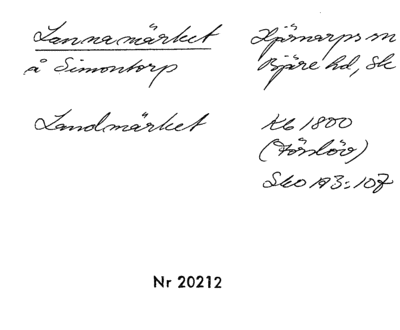 Lannamärket
å Simontorp
Hjärnarps sn
Bjäre hd, Sk
Landmärket
Kb 1800
(Förslöv)
Sko A3:107
Nr 20212